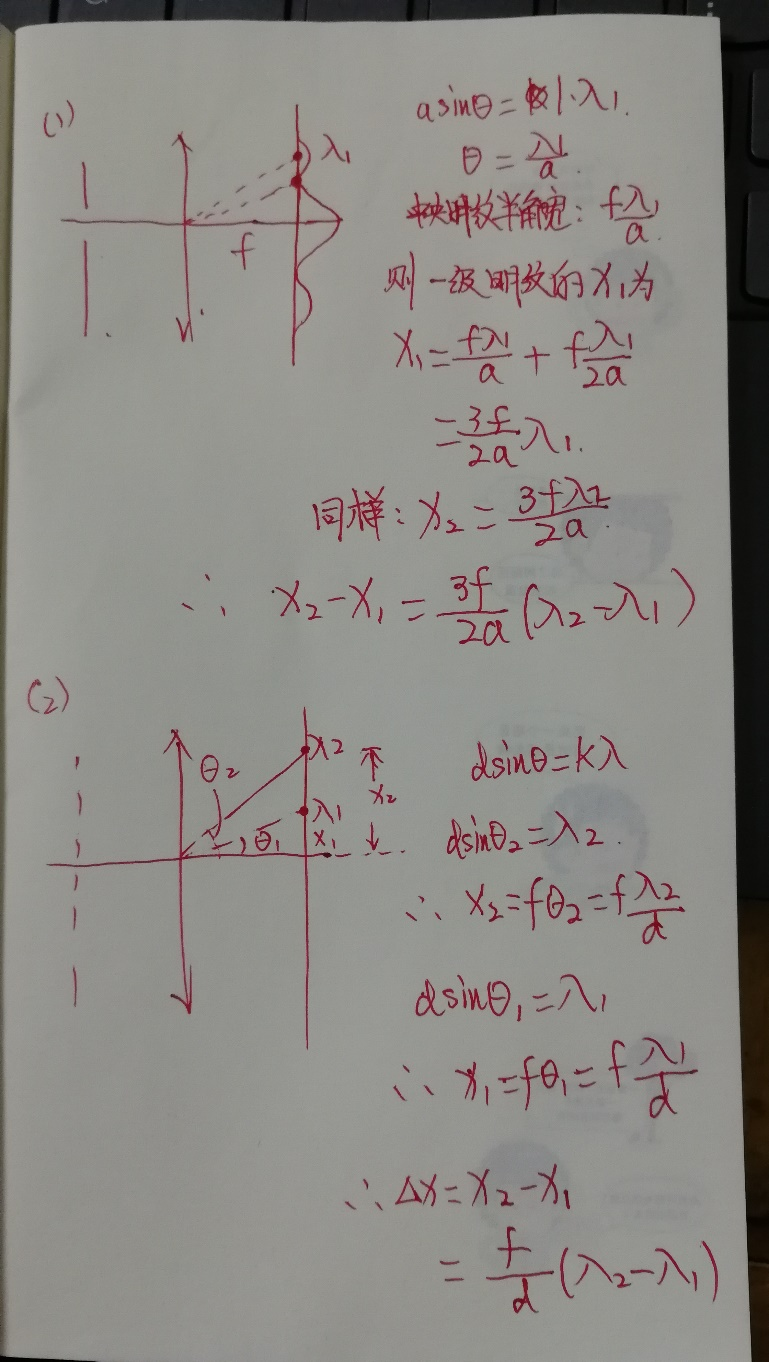 (1)
λ₁
f
asinθ = 1·λ₁.
θ = λ₁/a.
中央明纹半角宽: fλ₁/a.
则一级明纹的 x₁为
x₁ = fλ₁/a + f λ₁/2a
= 3f/2a λ₁.
同样: x₂ = 3fλ₂/2a.
∴ x₂-x₁ = 3f/2a (λ₂-λ₁)
(2)
θ₂
λ2
x₂
λ1
θ₁
x₁
dsinθ=kλ
dsinθ₂=λ₂.
∴ x₂=fθ₂=f λ₂/d
dsinθ₁=λ₁
∴ x₁=fθ₁= f λ₁/d
∴ Δx= x₂-x₁
= f/d (λ₂-λ₁)